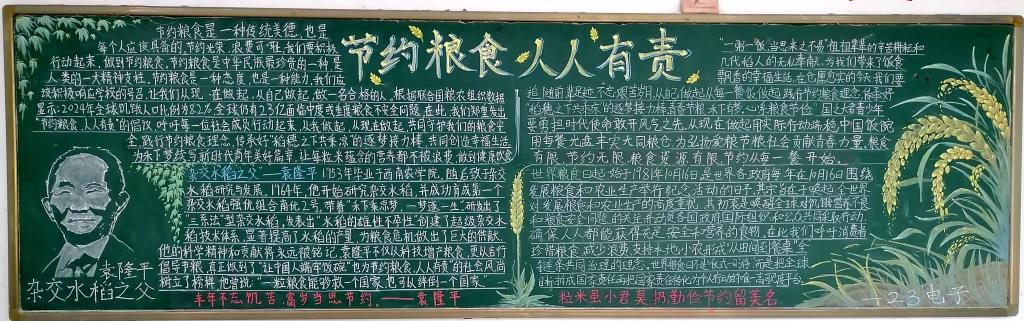 节约粮食人人有责
节约粮食是一种传统美德,也是
每个人应该具备的,节约光荣,浪费可耻,我们要积极
行动起来,做到节约粮食,节约粮食是中华民族最珍贵的一种是
人类的一大精神支柱,节约粮食是一种态度,也是一种能力,我们应
该积极响应学校的号召,让我们从现在做起,从自己做起,做一名合格的人,根据联合国粮农组织数据
显示:2024年全球饥饿人口比例为8.2%,全球仍有23亿面临中度或重度粮食不安全问题,在此,我们郑重发出
"节约粮食,人人有责"的倡议,呼吁每一位社会成员行动起来,从我做起,从现在做起,共同守护我们的粮食安全
践行节约粮食理念,传承好"稻穗之下共乘凉"的逐梦接力棒,共同创造幸福生活
为禾下梦续写新时代青年美好篇章,让每粒米蕴含的
"杂交水稻之父"——袁隆平 1953年毕业于西南农学院,随后致力于杂交
水稻研究与发展,1964年,他开始研究杂交水稻,并成功育成第一个
杂交水稻强优组合南优2号,带着"禾下乘凉梦,一梦逐一生"研发出了
"三系法"型杂交水稻,发表出"水稻的雄性不孕性"创建了超级杂交水
稻技术体系,显著提高了水稻的产量,为粮食危机做出了巨大的供献,
他的科学精神和贡献将永远很铭记,袁隆平不仅从科技增产粮食,更从言行
倡导节粮,真正做到了"让中国人端牢饭碗"也为节约粮食,人人有责"的社会风尚
树立了榜样,他曾说:"一粒粮食能够救一个国家,也可以绊倒一个国家."
丰年不忘饥苦,富岁当思节约.——袁隆平
袁隆平
杂交水稻之父
"一粥一饭,当思来之不易"祖祖辈辈的辛苦耕耘和
几代稻人的无私奉献,为我们带来了饭食
飘香的幸福生活,在仓廪愈实的今天我们要
追随前辈足迹,不忘艰苦岁月,从己做起,从每一餐饮做起,践行节约粮食理念,传承好
"稻穗之下共乘凉"的逐梦接力棒,青春节粮禾下篇,心系粮食节俭"国之大者"青少年
要勇担时代使命敢开风气之先,从现在做起用实际行动端稳中国饭碗
用每餐光盘丰实大同粮仓,为弘扬爱粮节粮社会贡献青春力量,粮食
有限,节约无限,粮食资源有限,节约从每一餐开始.
世界粮食日起始于1981年10月16日是世界各政府每年在10月16日围绕
发展粮食和农业生产举行纪念活动的日子,其宗旨在于唤起全世界
对发展粮食和农业生产的高度重视,其初衷是唤起全球对饥饿营养不良
和粮食安全问题的关注并动员各国政府国际组织和公众共同采取行动,
确保人人都能获得充足安全和营养的食物,在此我们呼吁消费者
珍惜粮食,减少浪费支持本地小农形成"从田间到餐桌"全
链条共同治理的理念,世界粮食日
粒米虽小君莫扔勤俭节约留美名
一23电子